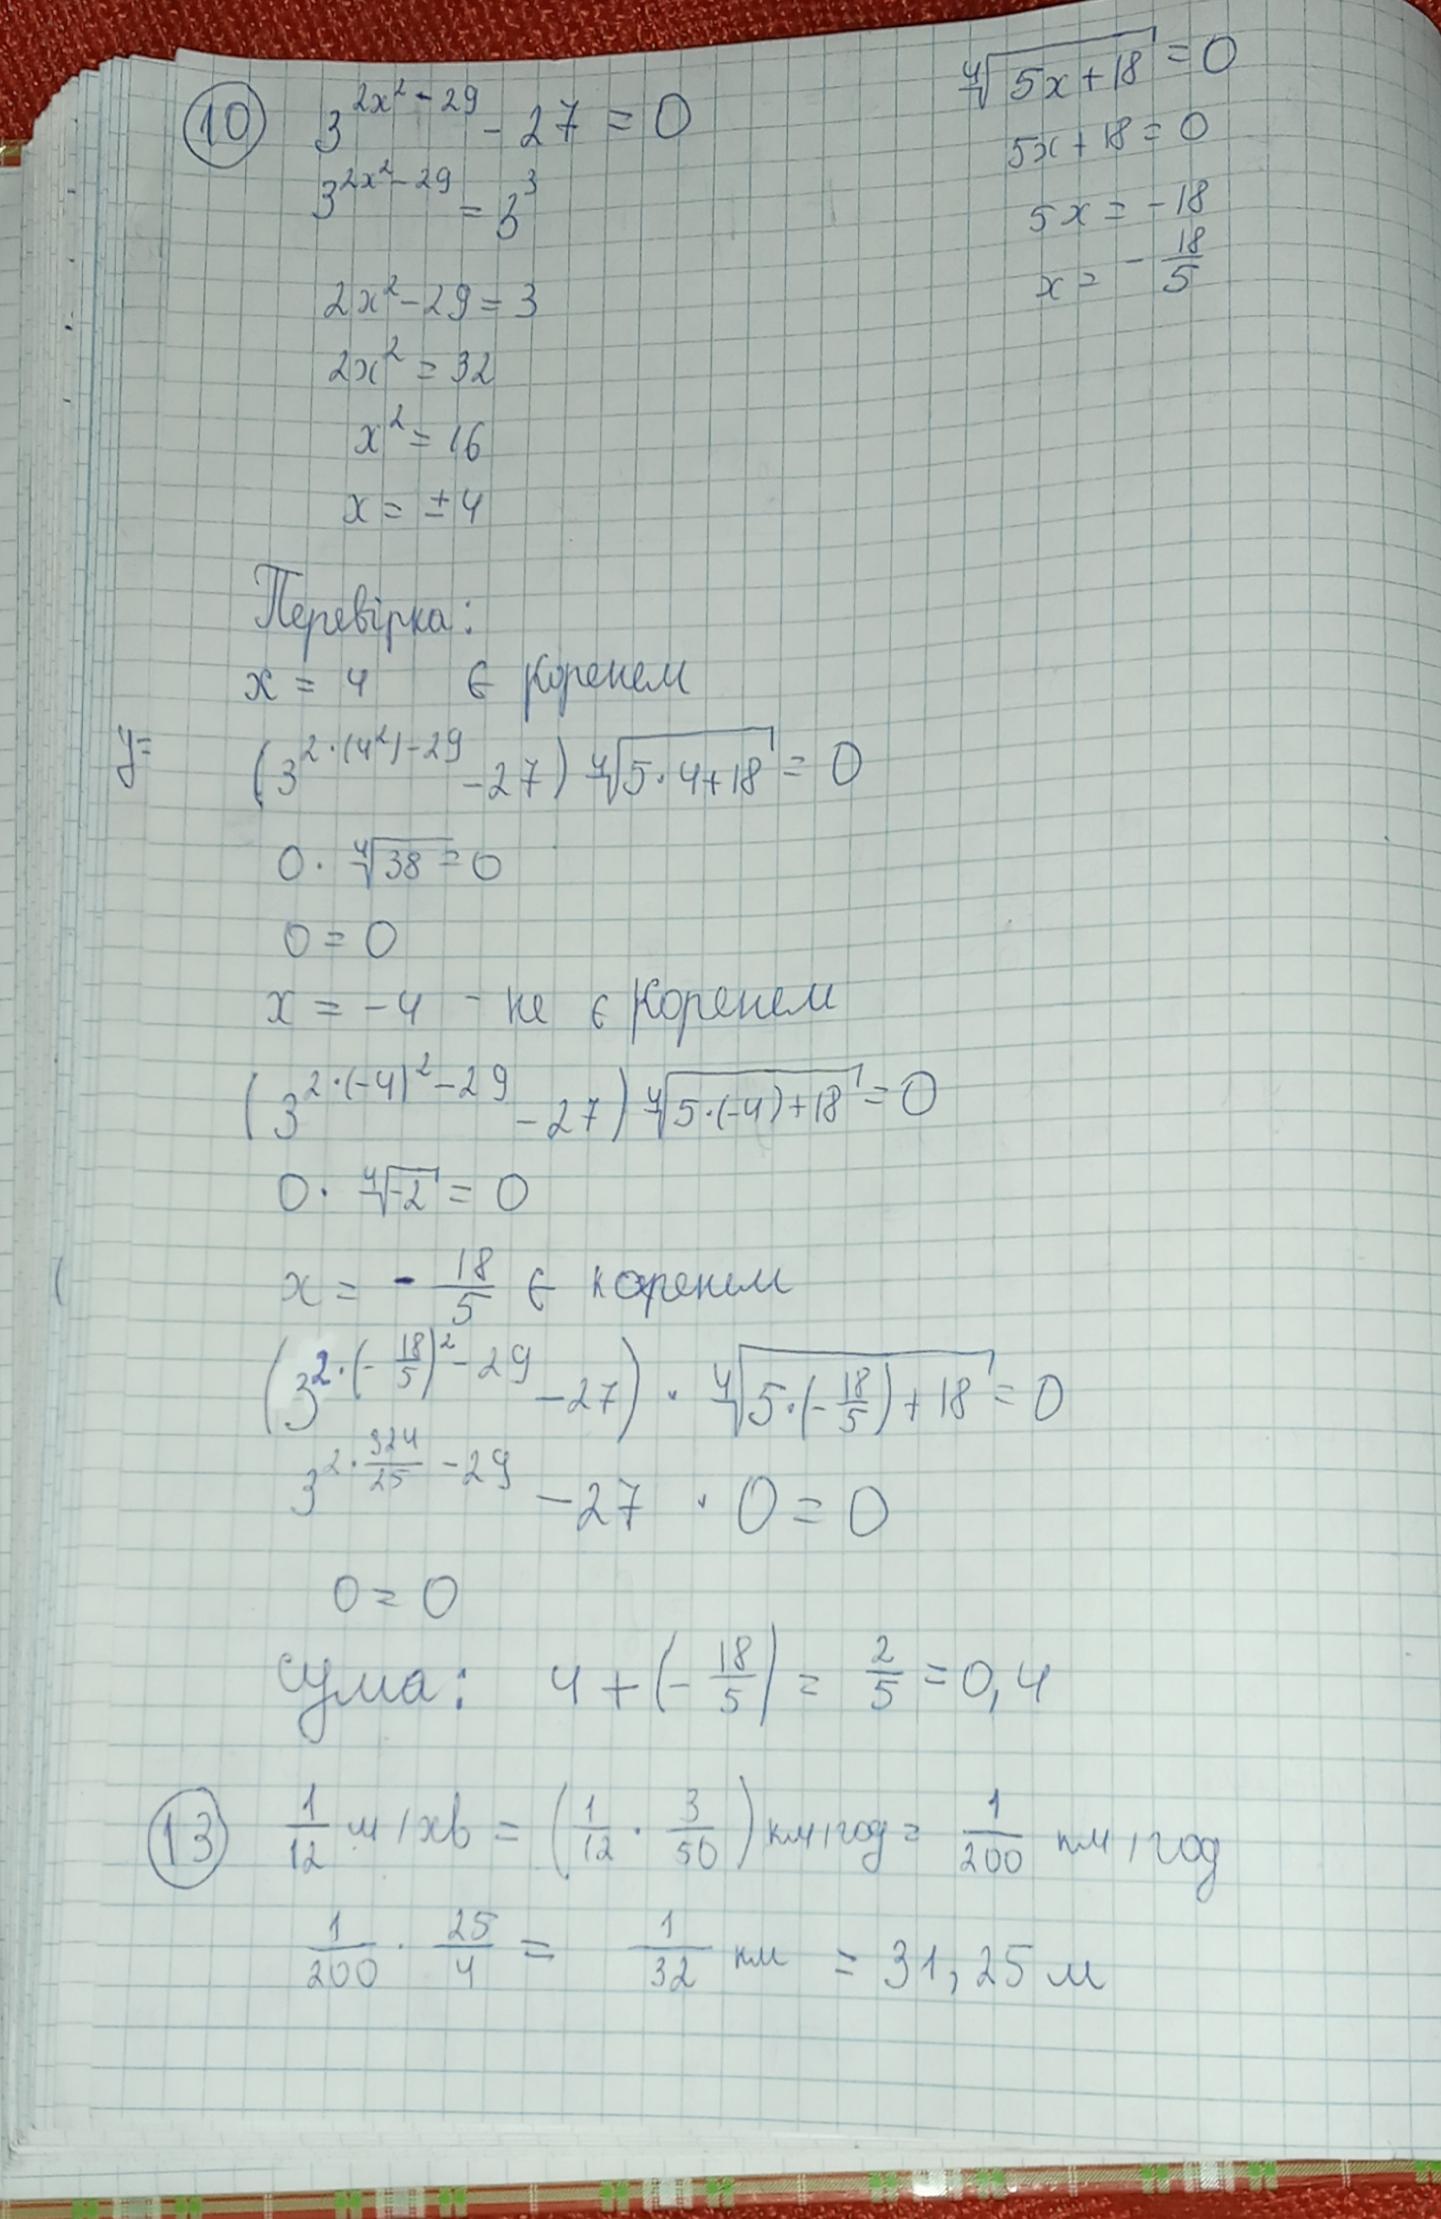 10 3^(2x²-29) - 27 = 0
3^(2x²-29) = 3³
2x²-29=3
2x² = 32
x² = 16
x = ±4
⁴√(5x+18) = 0
5x+18=0
5x = -18
x = - 18/5
Перевірка:
x = 4 є коренем
y= (3^(2·(4²)-29) -27) ⁴√(5·4+18) = 0
0 · ⁴√38 = 0
0 = 0
x = -4 - не є коренем
(3^(2·(-4)²-29) -27) ⁴√(5·(-4)+18) = 0
0 · ⁴√-2 = 0
x = - 18/5 є коренем
(3^(2·(-18/5)²-29) -27) · ⁴√(5·(-18/5)+18) = 0
3^(2·324/25 -29) -27 · 0 = 0
0 = 0
сума: 4+(-18/5) = 2/5 = 0,4
13 1/12 м/хв = (1/12 · 3/50) км/год = 1/200 км/год
1/200 · 25/4 = 1/32 км = 31,25 м